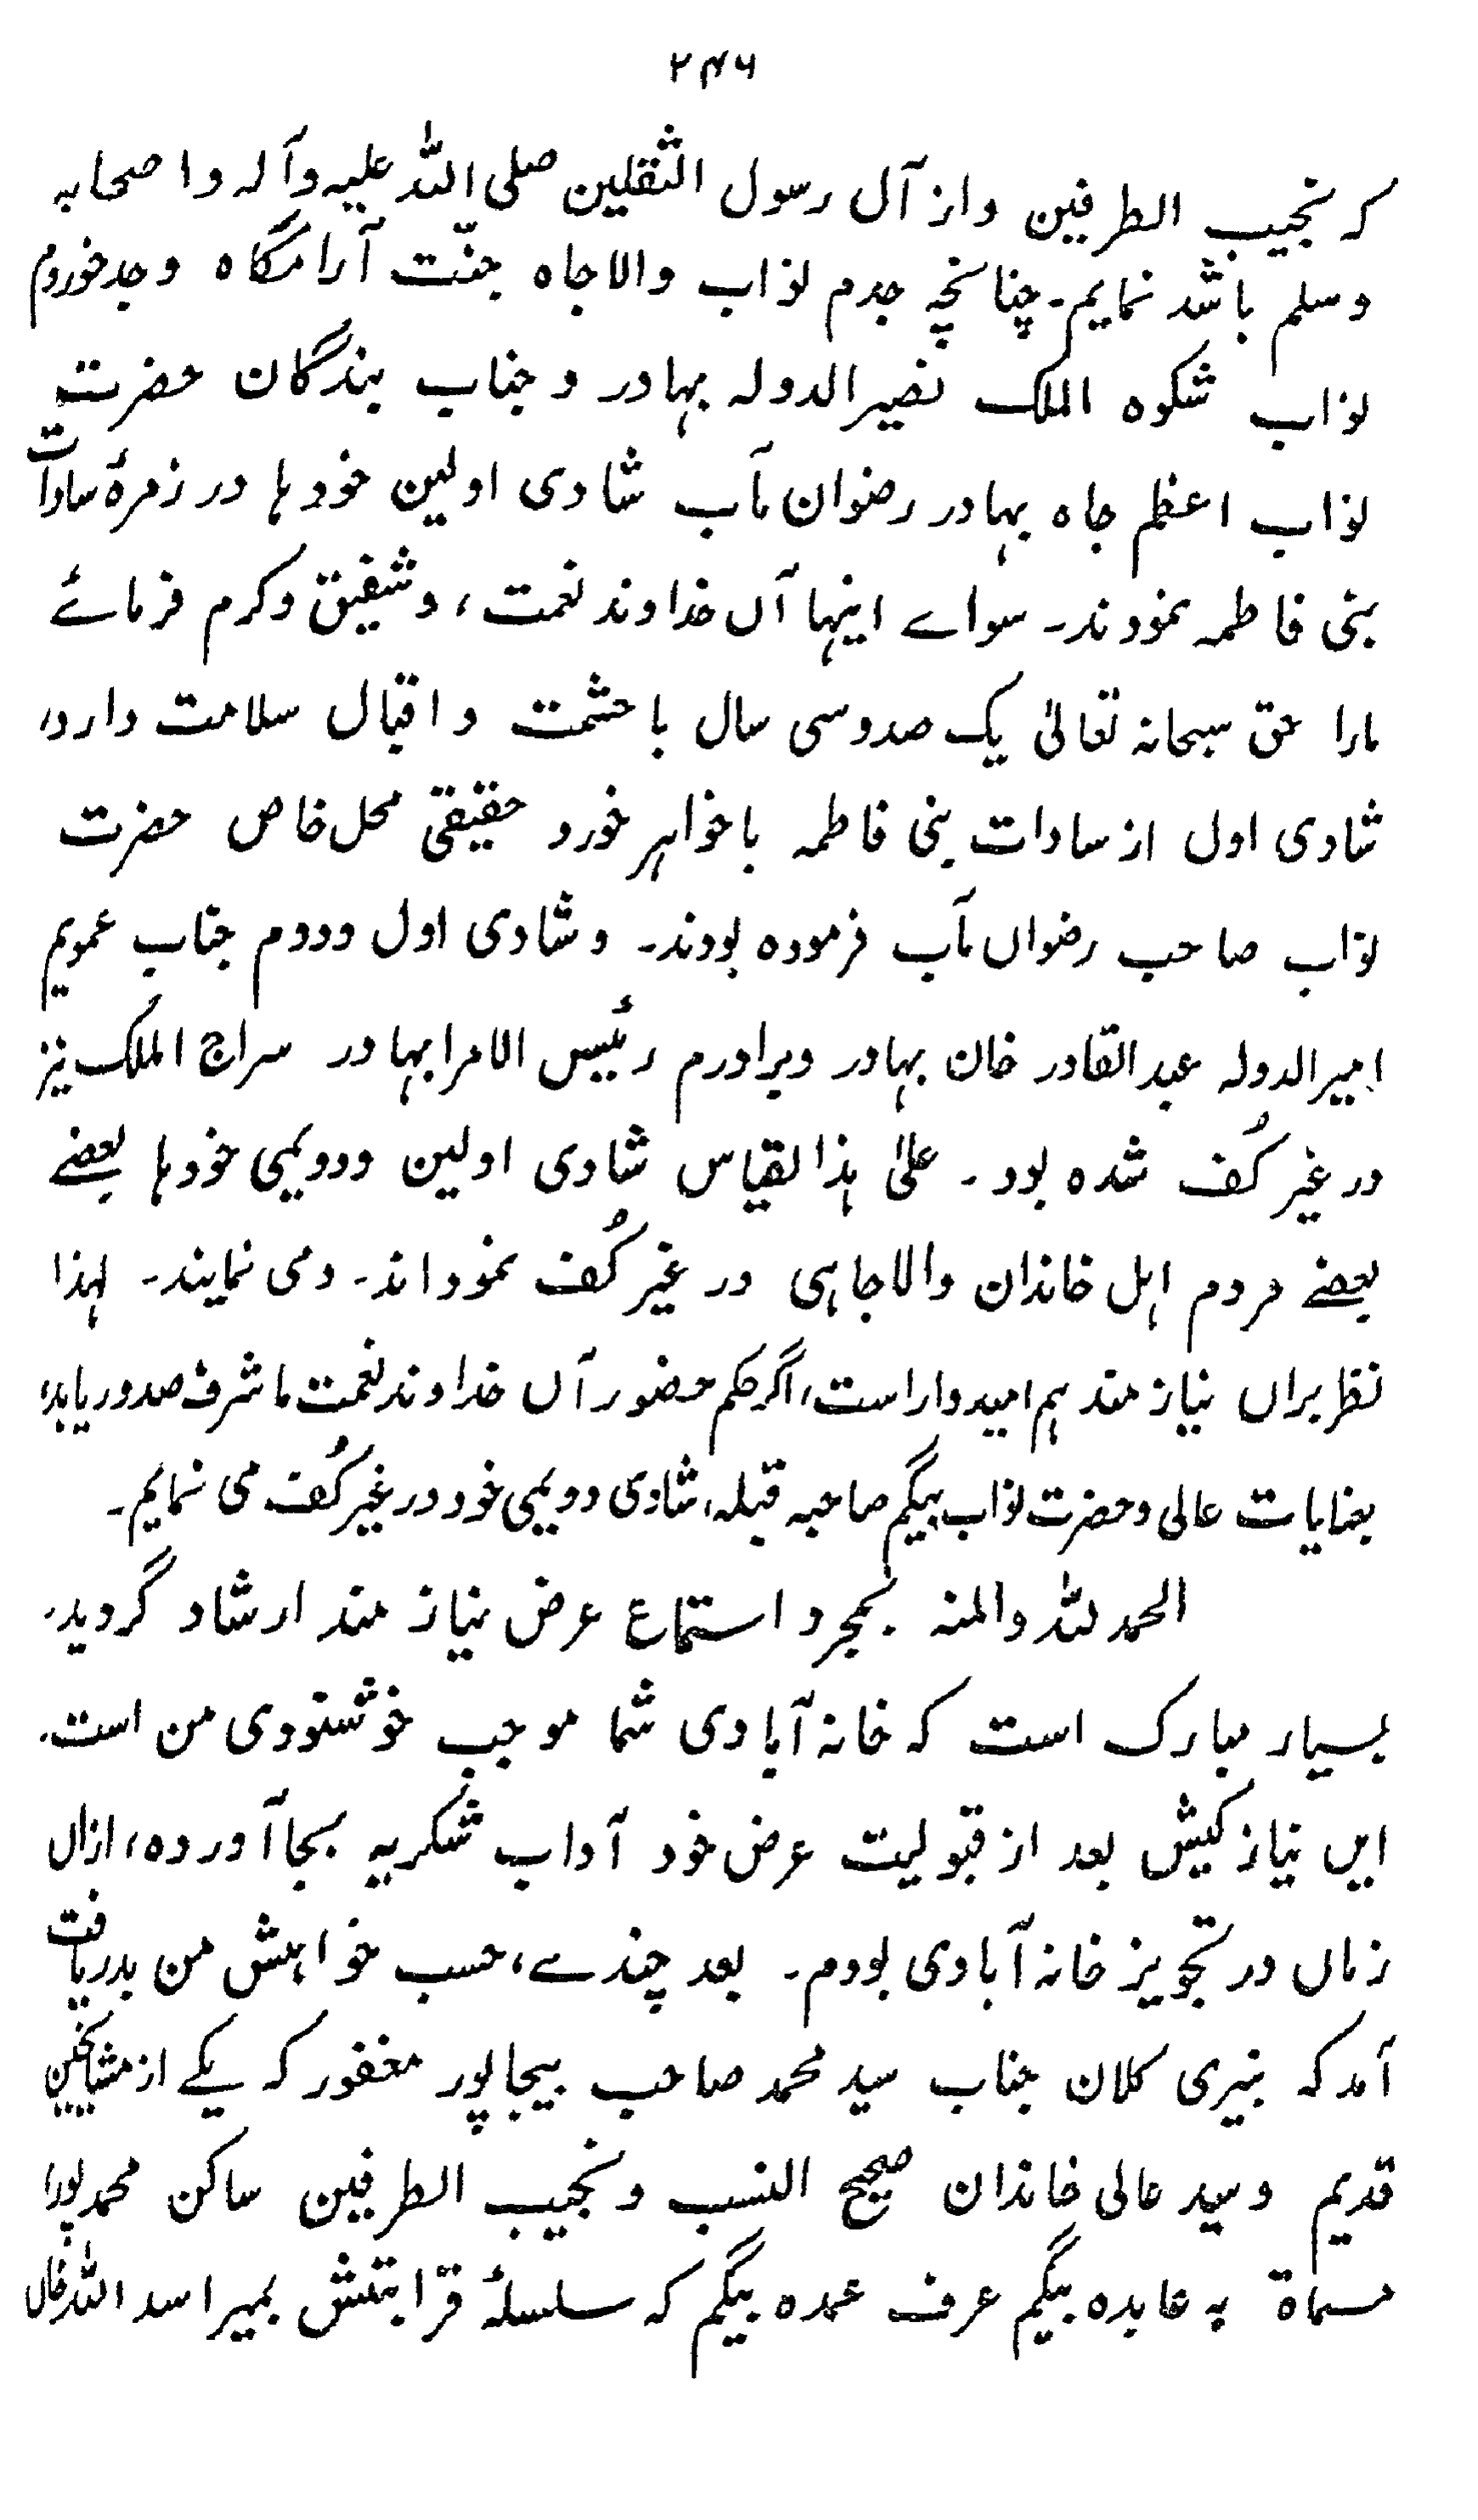 ۲۴۶
کہ نجیب الطرفین و از آل رسول الثقلین صلی اللہ علیہ وآلہ واصحابہ
وسلم باشد نمایم۔ چنانچہ جدم نواب والا جاہ جنّت آرامگاہ وجد خوردم
نواب شکوہ الملک نصیر الدولہ بہادر و جناب بندگان حضرت
نواب اعظم جاہ بہادر رضوان مآب شادی اولین خود ہا در زمرۂ سادات
بنی فاطمہ نمودند۔ سواے اینہا آں خداوند نعمت، و شفیق و کرم فرمائے
مارا حق سبحانہ تعالیٰ یک صدوسی سال با حشمت و اقبال سلامت دارد،
شادی اول از سادات بنی فاطمہ با خواہر خورد حقیقی محل خاص حضرت
نواب صاحب رضواں مآب فرمودہ بودند۔ و شادی اول ودوم جناب عمویم
امیر الدولہ عبد القادر خان بہادر وبرادرم رئیس الامرا بہادر سراج الملک نیز
در غیر کُف شدہ بود۔ علیٰ ہذا لقیاس شادی اولین ودویمی خود ہا بعضے
بعضے مردم اہل خاندان والا جاہی در غیر کُف نمودا ند۔ و می نمایند۔ لہذا
نظر براں نیاز مند ہم امیدوار است، اگر حکم حضور آں خداوند نعمت ما شرف صدور یابد،
بعنایات عالی و حضرت نواب بیگم صاحبہ قبلہ، شادی دویمی خود در غیر کُف می نمایم۔
الحمد للہ والمنہ بمجرد استماع عرض نیاز مند ارشاد گردید،
بسیار مبارک است کہ خانہ آبادی شما موجب خوشنودی من است۔
ایں نیاز کیش بعد از قبولیت عرض خود آداب شکریہ بجا آوردہ، ازاں
زماں در تجویز خانہ آبادی بودم۔ بعد چندے، حسب خواہش من بدریافت
آمد کہ نبیری کلان جناب سید محمد صاحب بیجاپور مغفور کہ یکے از مشایخین
قدیم و سید عالی خاندان صحیح النسب و نجیب الطرفین ساکن محمد پورا
مسماۃ بہ عابدہ بیگم عرف عمدہ بیگم کہ سلسلۂ قرابتش بمیر اسد اللہ خاں